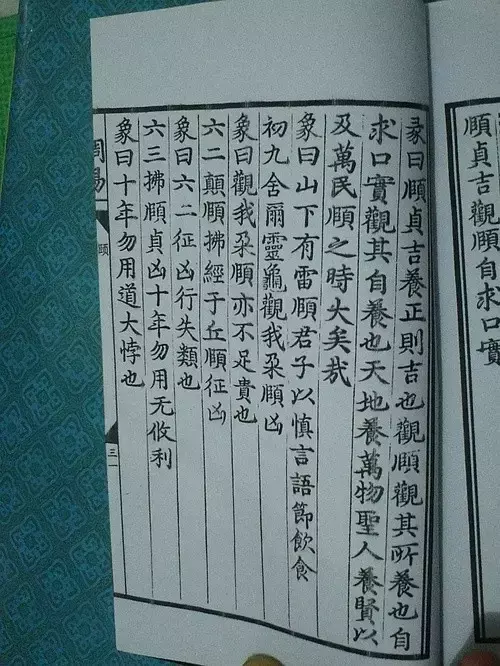 頤貞吉觀頤自求口實
彖曰頤貞吉養正則吉也觀頤觀其所養也自
求口實觀其自養也天地養萬物聖人養賢以
及萬民頤之時大矣哉
象曰山下有雷頤君子以慎言語節飲食
初九舍爾靈龜觀我朶頤凶
象曰觀我朶頤亦不足貴也
六二顛頤拂經于丘頤征凶
象曰六二征凶行失類也
六三拂頤貞凶十年勿用无攸利
象曰十年勿用道大悖也
周易
頤
三一